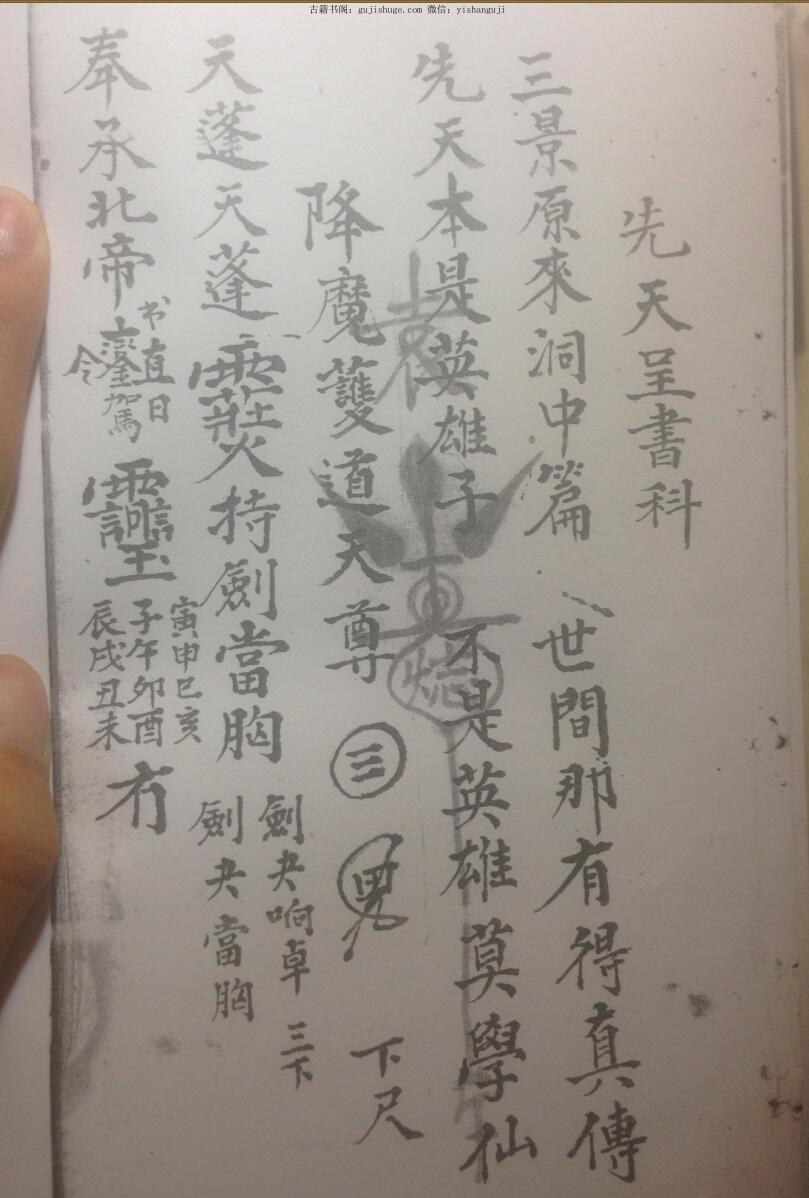 古籍书阁：gujishuge.com 微信：yishanguji
先天呈書科
三景原來洞中篇 世間那有得真傳
先天本是英雄子 不是英雄莫學仙
降魔護道天尊 三 下尺
天蓬天蓬 持劍當胸 劍夬响卓 三下 劍夬當胸
奉承北帝 书直日 駕 令 寅申巳亥 子午卯酉 辰戌丑未 冇